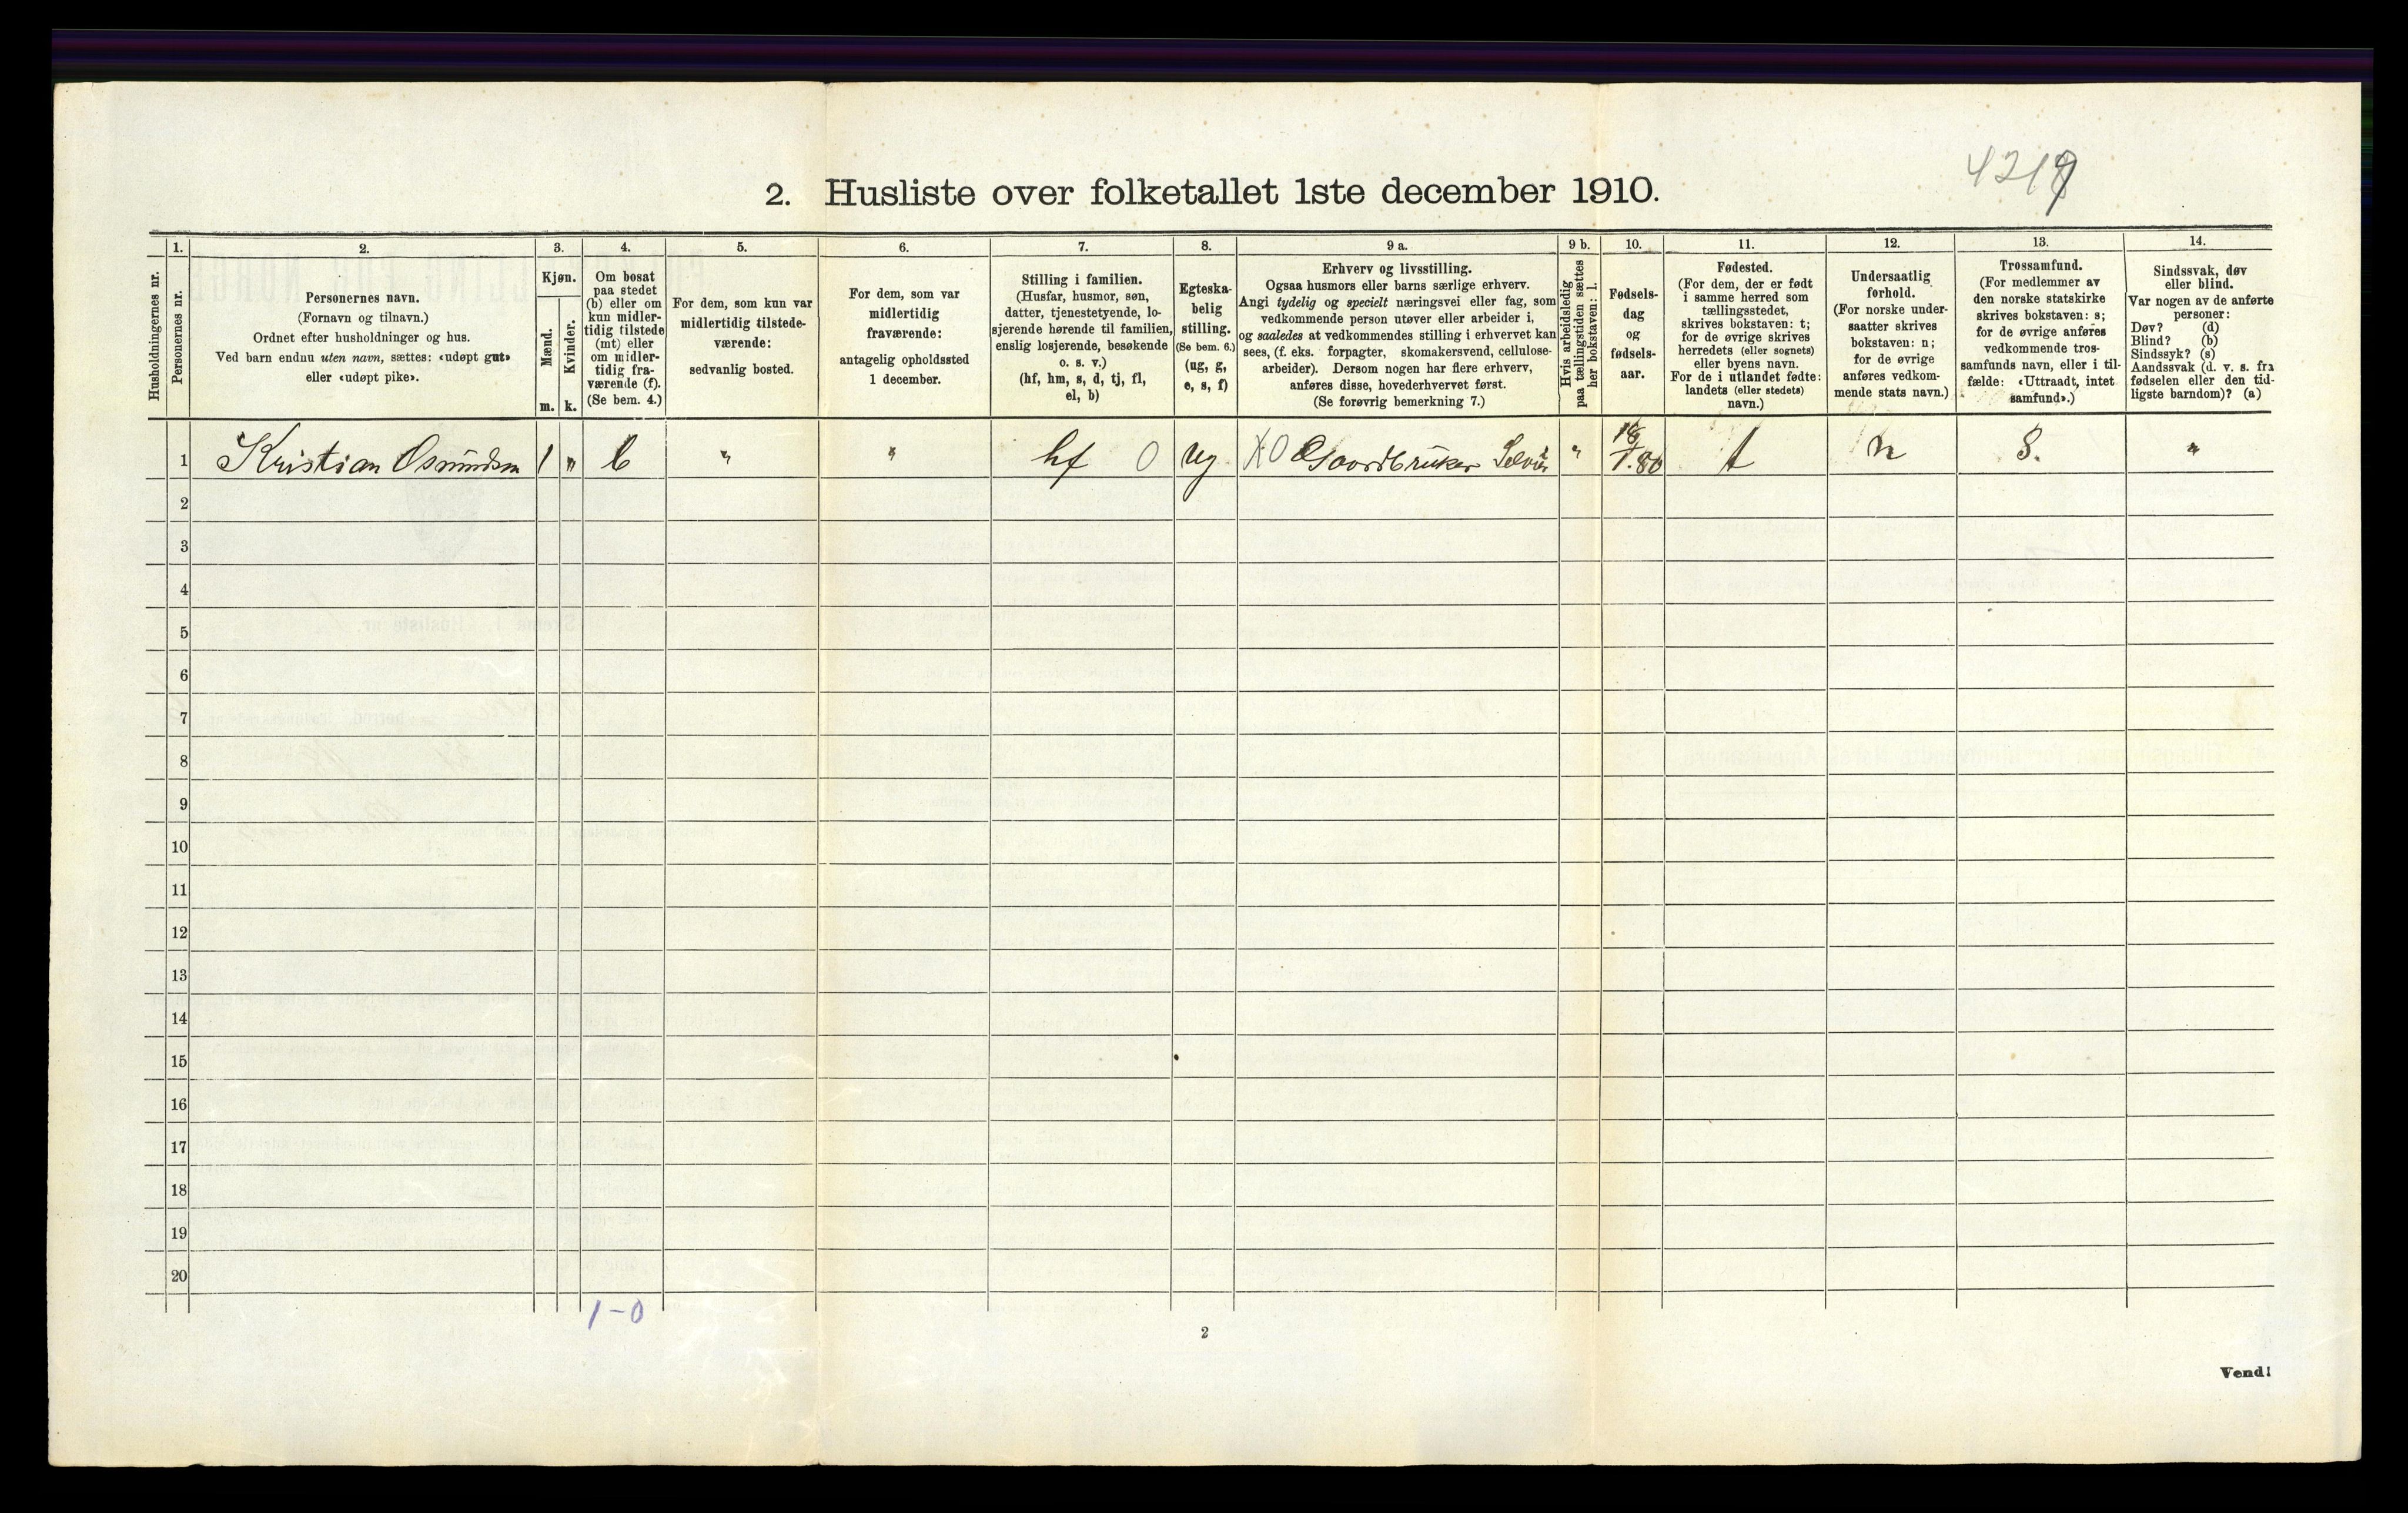 2. Husliste over folketallet 1ste december 1910.
Husholdningernes nr.
1.
Personernes nr.
2.
Personernes navn.
(Fornavn og tilnavn.)
Ordnet efter husholdninger og hus.
Ved barn endnu uten navn, sættes: «udøpt gut»
eller «udøpt pike».
3.
Kjøn.
Mænd.
m.
Kvinder.
k.
4.
Om bosat
paa stedet
(b) eller om
kun midler-
tidig tilstede
(mt) eller
om midler-
tidig fra-
værende (f).
(Se bem. 4.)
5.
For dem, som kun var
midlertidig tilstede-
værende:
sedvanlig bosted.
6.
For dem, som var
midlertidig
fraværende:
antagelig opholdssted
1 december.
7.
Stilling i familien.
(Husfar, husmor, søn,
datter, tjenestetyende, lo-
sjerende hørende til familien,
enslig losjerende, besøkende
o. s. v.)
(hf, hm, s, d, tj, fl,
el, b)
8.
Egteska-
belig
stilling.
(Se bem. 6.)
(ug, g,
e, s, f)
9 a.
Erhverv og livsstilling.
Ogsaa husmors eller barns særlige erhverv.
Angi tydelig og specielt næringsvei eller fag, som
vedkommende person utøver eller arbeider i,
og saaledes at vedkommendes stilling i erhvervet kan
sees, (f. eks. forpagter, skomakersvend, cellulose-
arbeider). Dersom nogen har flere erhverv,
anføres disse, hovederhvervet først.
(Se forøvrig bemerkning 7.)
9 b.
Hvis arbeidsledig
paa tællingstiden sættes
her bokstaven: l.
10.
Fødsels-
dag
og
fødsels-
aar.
11.
Fødested.
(For dem, der er født
i samme herred som
tællingsstedet,
skrives bokstaven: t;
for de øvrige skrives
herredets (eller sognets)
eller byens navn.
For de i utlandet fødte:
landets (eller stedets)
navn.)
12.
Undersaatlig
forhold.
(For norske under-
saatter skrives
bokstaven: n;
for de øvrige
anføres vedkom-
mende stats navn.)
13.
Trossamfund.
(For medlemmer av
den norske statskirke
skrives bokstaven: s;
for de øvrige anføres
vedkommende tros-
samfunds navn, eller i til-
fælde: «Uttraadt, intet
samfund».)
14.
Sindssvak, døv
eller blind.
Var nogen av de anførte
personer:
Døv? (d)
Blind? (b)
Sindssyk? (s)
Aandssvak (d. v. s. fra
fødselen eller den tid-
ligste barndom)? (a)
1 Kristian Osmundsen 1 " b " " hf 0 ug X0 Gaardbruker " 18/7.80 t n S. "
2
3
4
5
6
7
8
9
10
11
12
13
14
15
16
17
18
19
20
1-0
2
Vend!